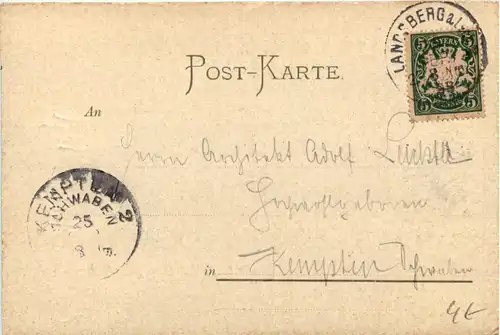 LANDSBERG a/
5 BAYERN 5
5 5
POST-KARTE.
An
Herrn Architekt Adolf
Hochwohlgeboren
KEMPTEN 2
SCHWABEN
25
8
in Kempten Schwaben
4€